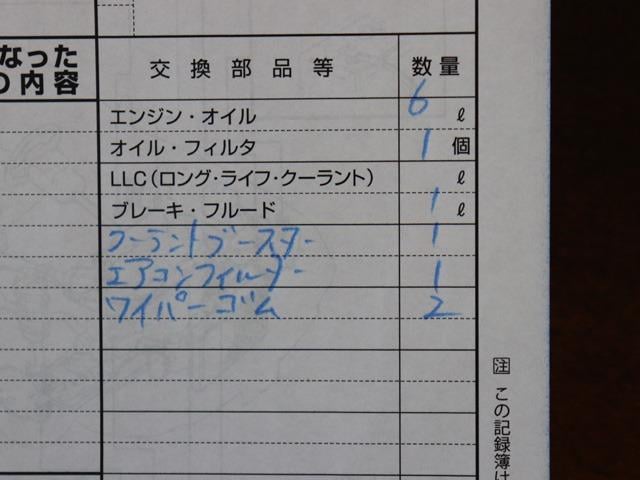 なった
の内容
交換部品等 数量
エンジン・オイル 6 ℓ
オイル・フィルタ 1 個
LLC(ロング・ライフ・クーラント) ℓ
ブレーキ・フルード 1 ℓ
クーラントブースター 1
エアコンフィルター 1
ワイパーゴム 2
注 この記録簿は